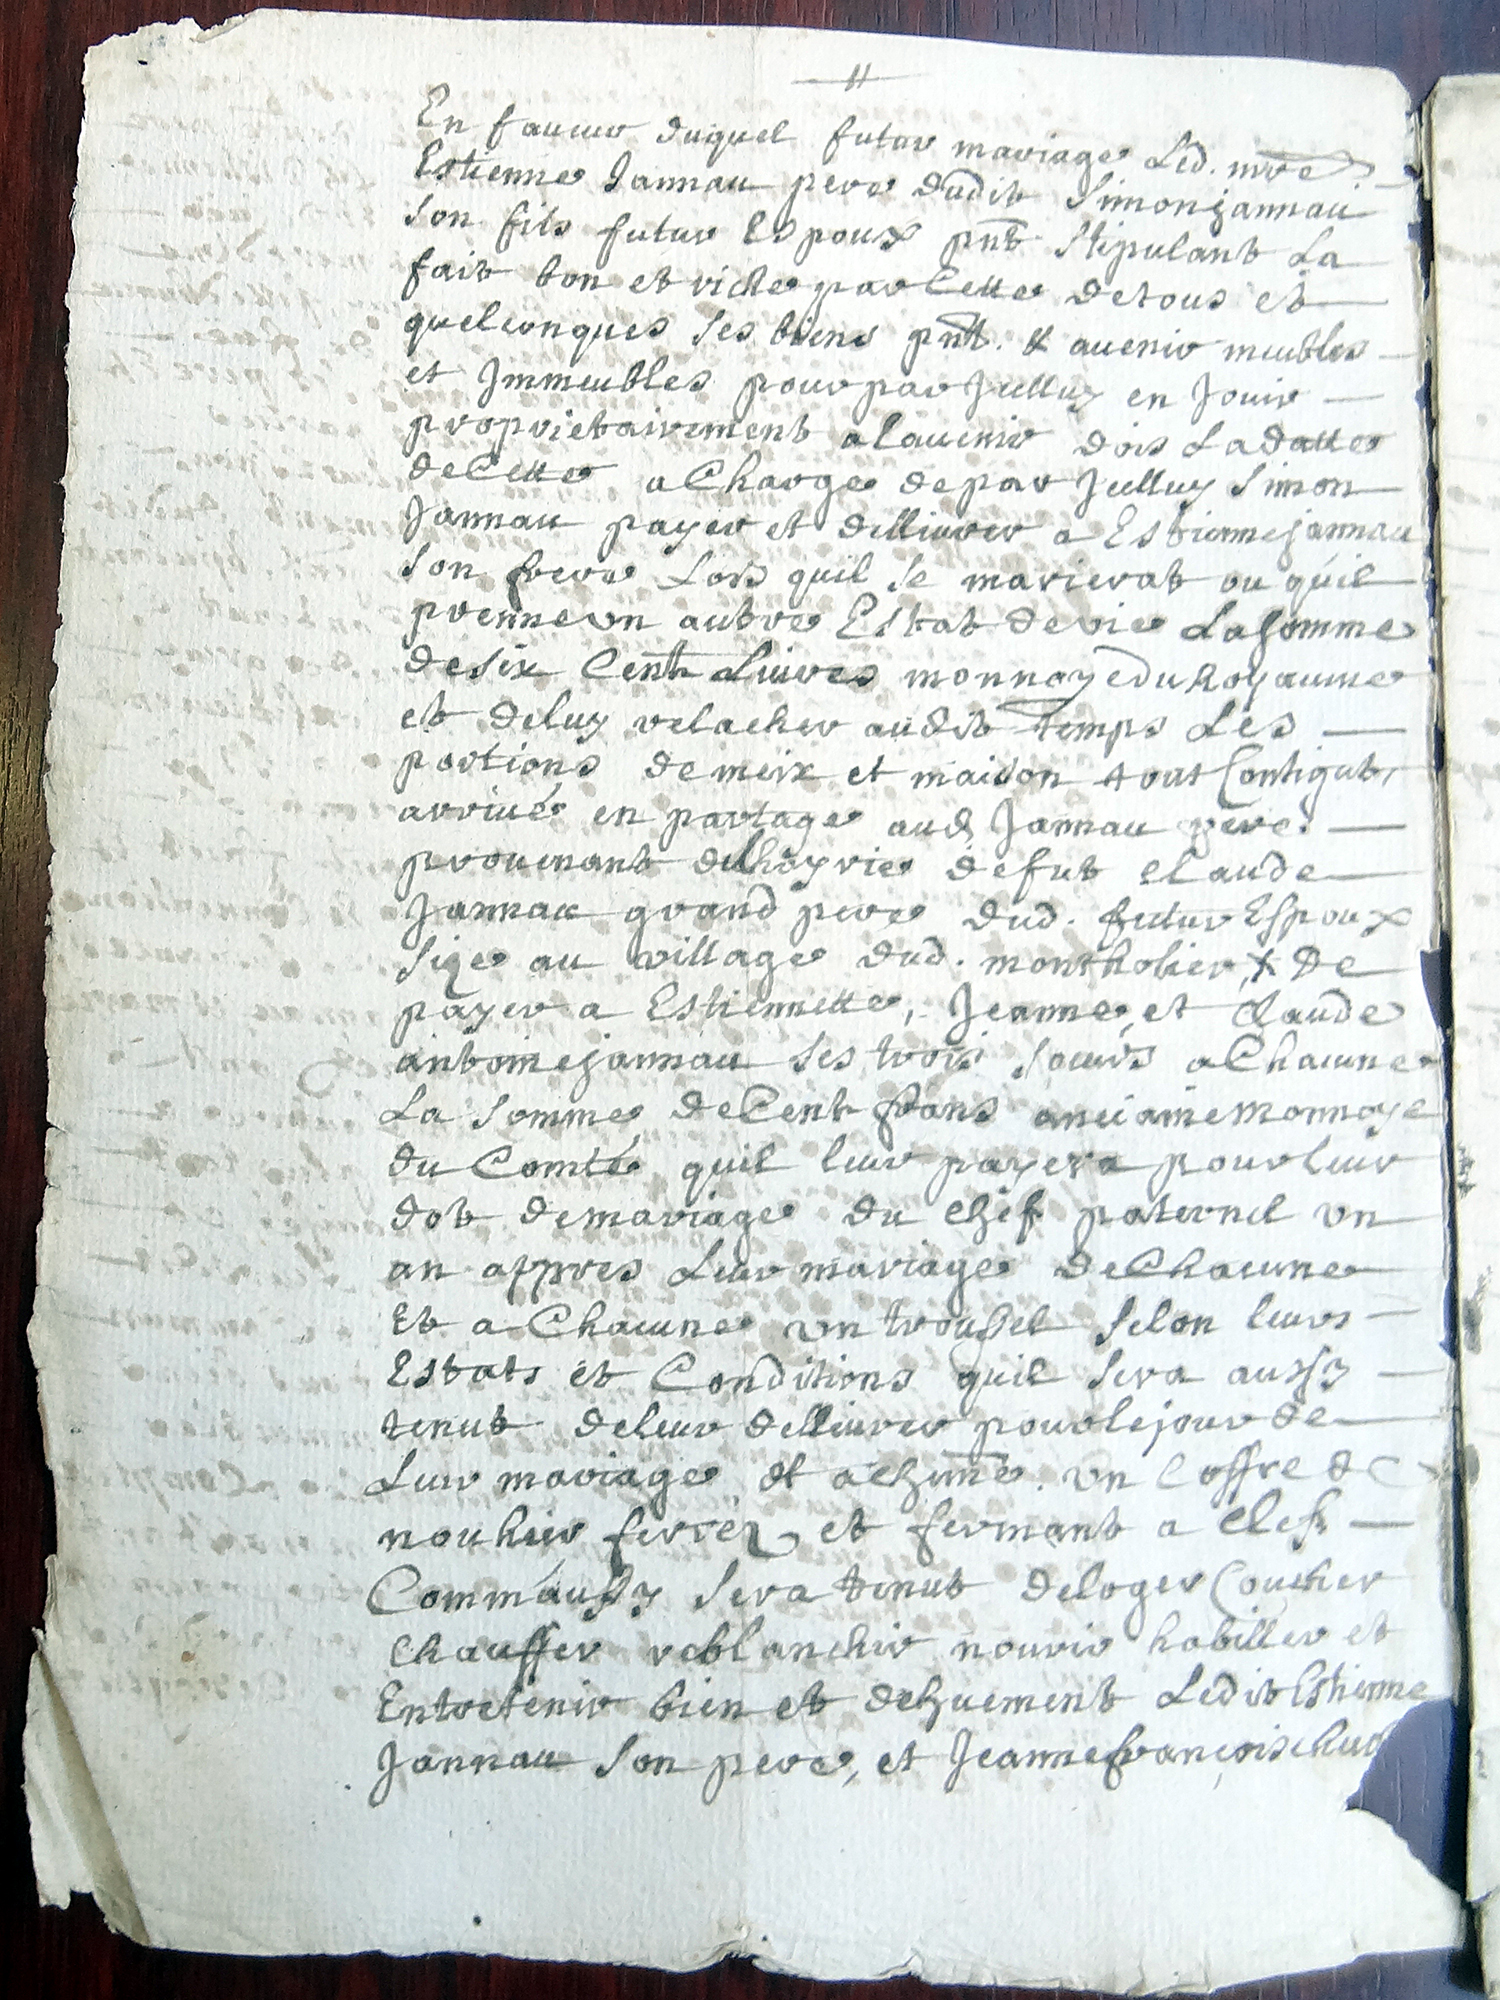 En faueur duquel futur mariage Led. mre
Estienne Jannau pere dudit Simon jannau
son fils futur Espoux pnt stipulant La
fait bon et riche par Cette de tous et
quelconques ses biens pnt. & auenir meubles
et Immeubles pour par Jcelluy en Jouir
proprietairement a Lauenir dois La datte
de Cette a Charge de par Jcelluy Simon
Jannau payer et delliurer a Estienne jannau
son frere Lors quil se marierat ou quil
prenne vn autre Estat de vie La somme
de six Cent Liures monnoye du Royaume
et de luy relacher audit temps Les
portions de meix et maison tout Contigut,
arriué en partage aud. Jannau pere.
prouenant de lhoyrie de fut claude
Jannau grand pere dud. futur Espoux
size au village dud. montholier, & de
payer a Estiennette, Jeanne, et Claude
antoine jannau ses trois soeurs a Chacune
La somme de Cent frans anciaine Monnoye
du Comté quil leur payera pour leur
dot de mariage du chef paternel vn
an appres Leur mariage de Chacune
Et a Chacune vn troussel selon leurs
Estats et Conditions quil sera aussy
tenut de leur delliurer pour le jour de
Leur mariage et a chune. vn Coffre de
nouhier ferrez et fermant a clef
Comm'aussy sera tenut de loger Coucher
Chauffer reblanchir nourir habiller et
Entretenir bien et dehuement Ledit Estienne
Jannau son pere, et Jeanne françoise